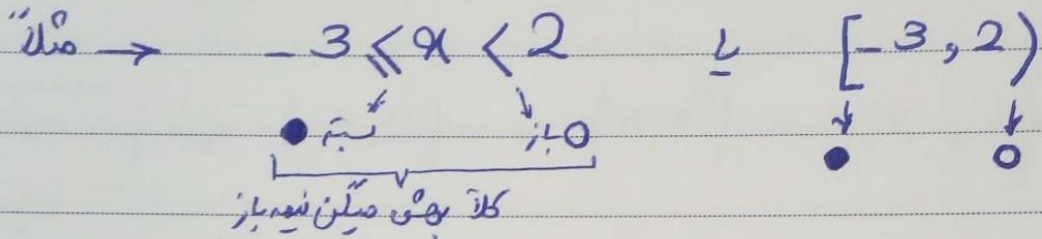 مثلاً → -3 ≤ x < 2 یا [-3 , 2)
● بسته باز ○ ● ○
کلاً بهش میگن نیمه باز